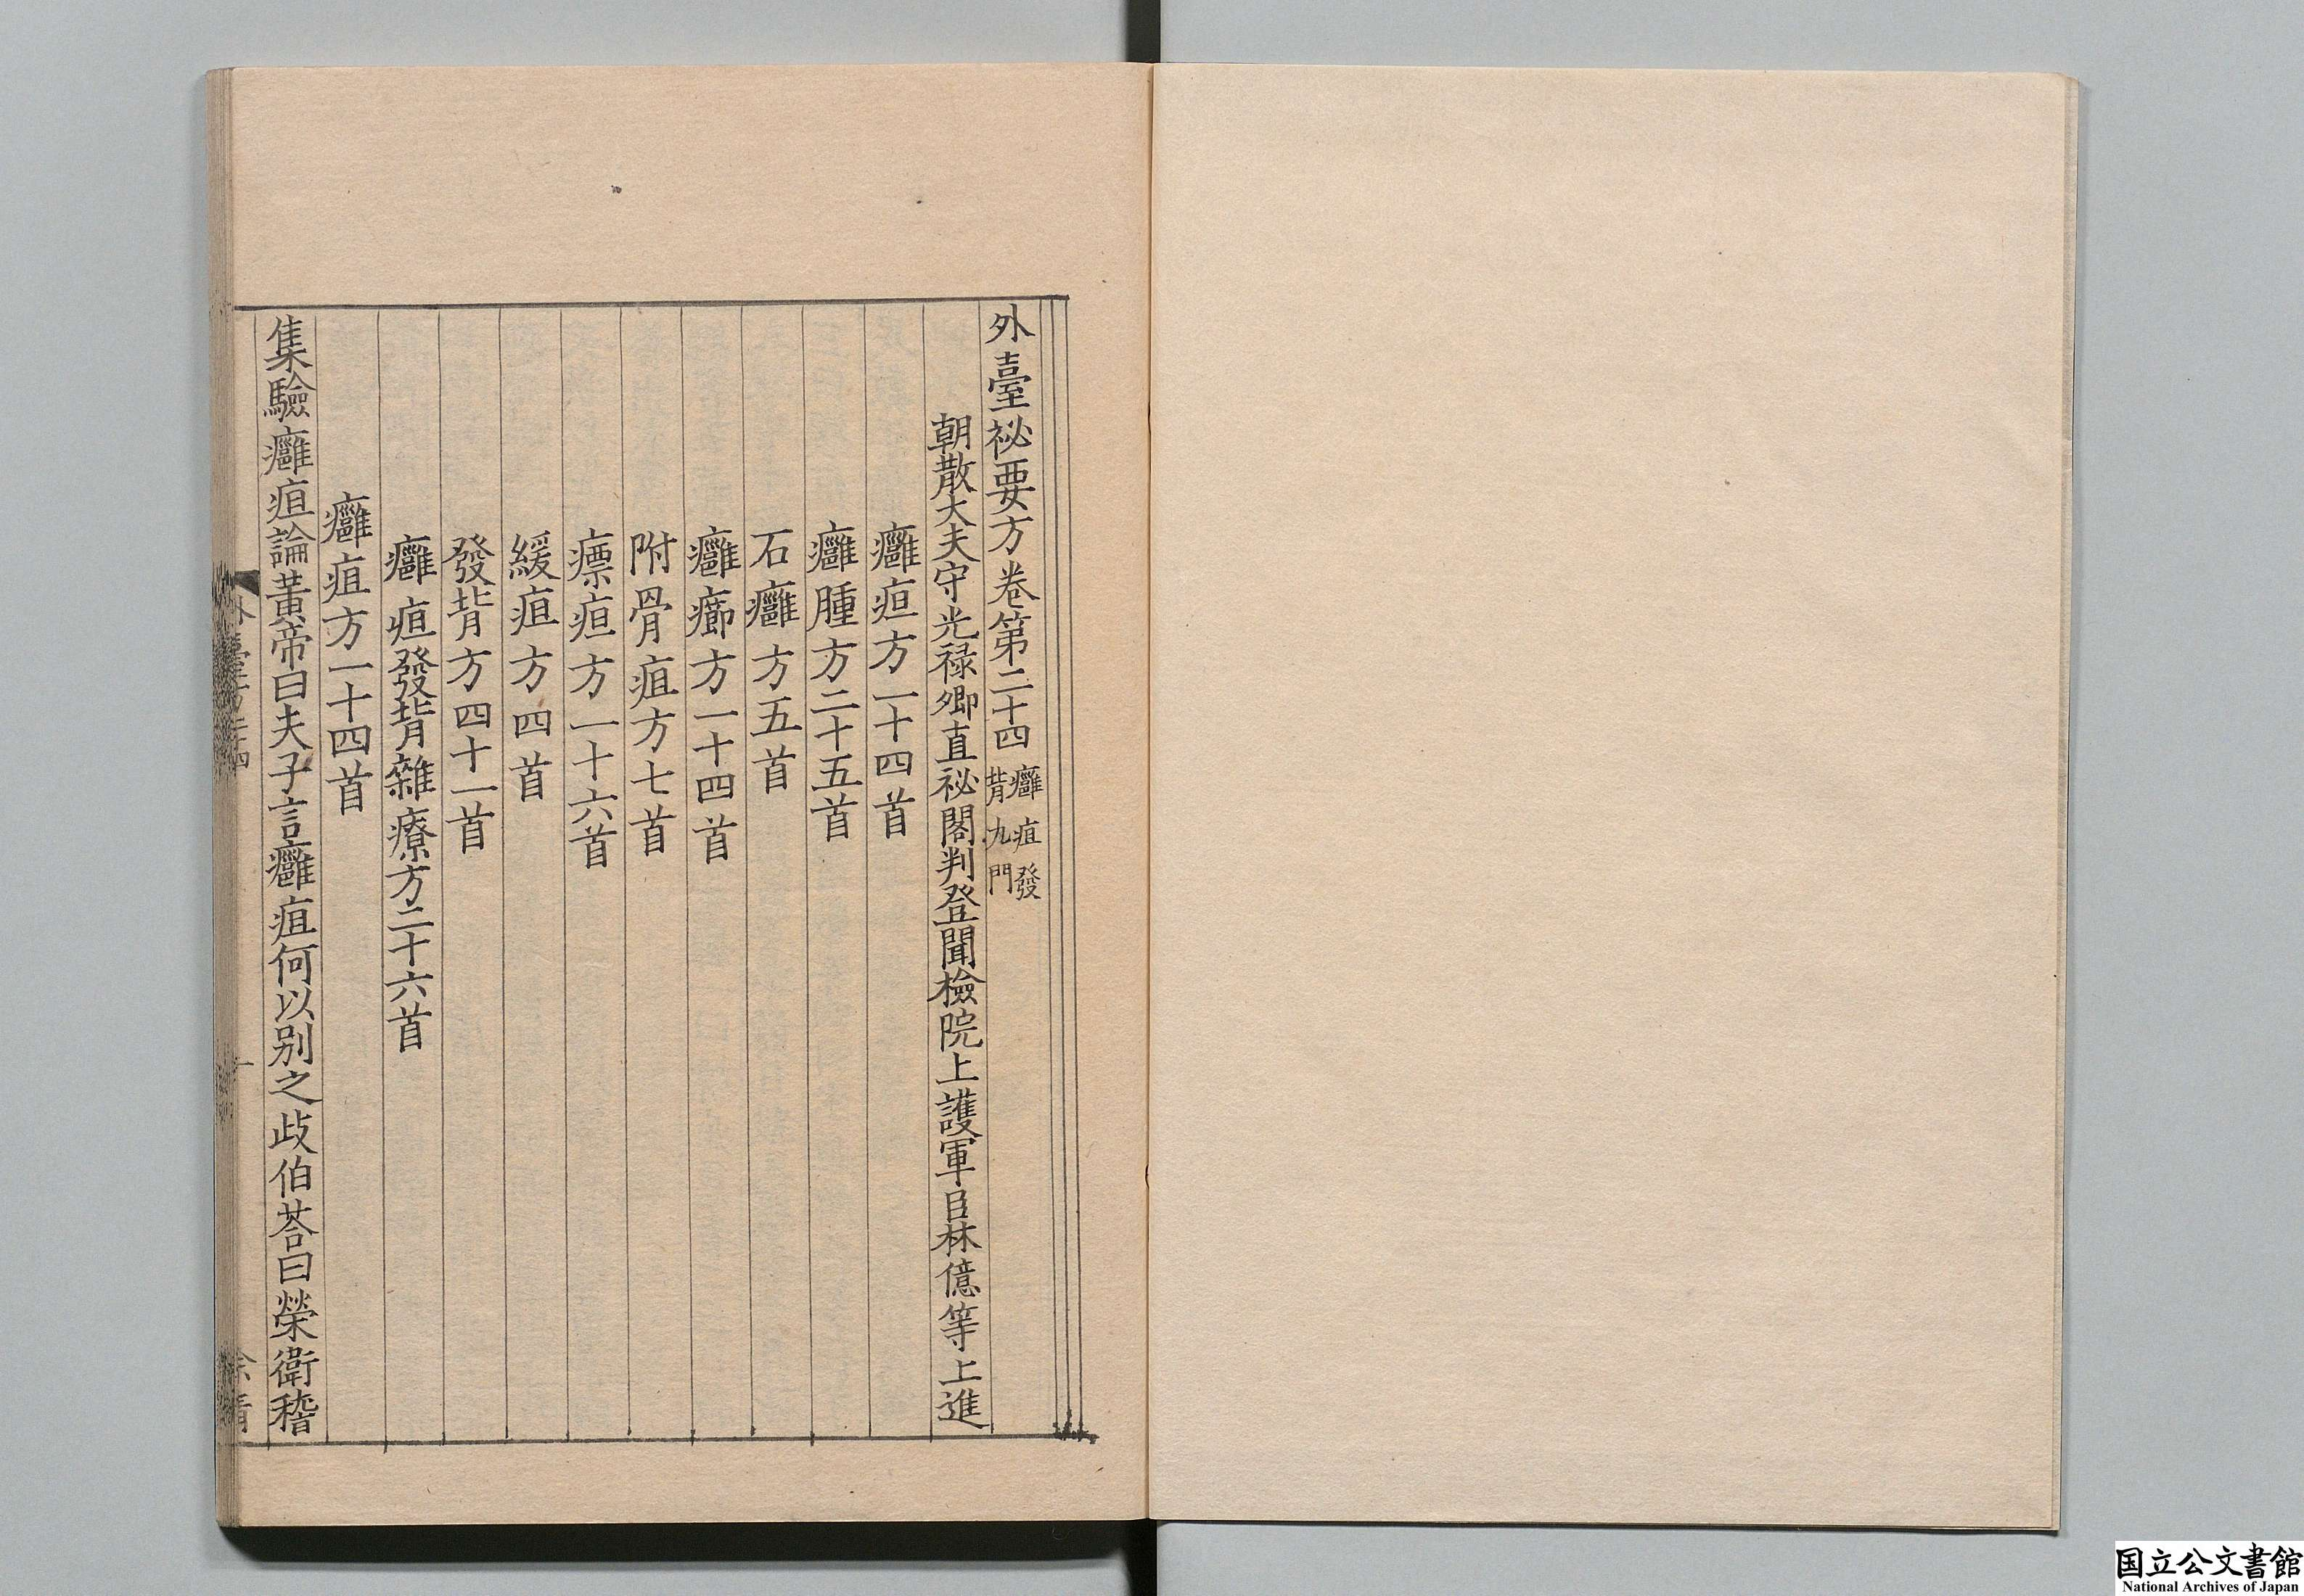 外臺祕要方卷第二十四癰疽發背九門
朝散大夫守光禄卿直祕閣判登聞檢院上護軍臣林億等上進
癰疽方一十四首
癰腫方二十五首
石癰方五首
癰癤方一十四首
附骨疽方七首
瘭疽方一十六首
緩疽方四首
發背方四十一首
癰疽發背雜療方二十六首
癰疽方一十四首
集驗癰疽論黃帝曰夫子言癰疽何以别之歧伯荅曰榮衛稽
国立公文書館
National Archives of Japan